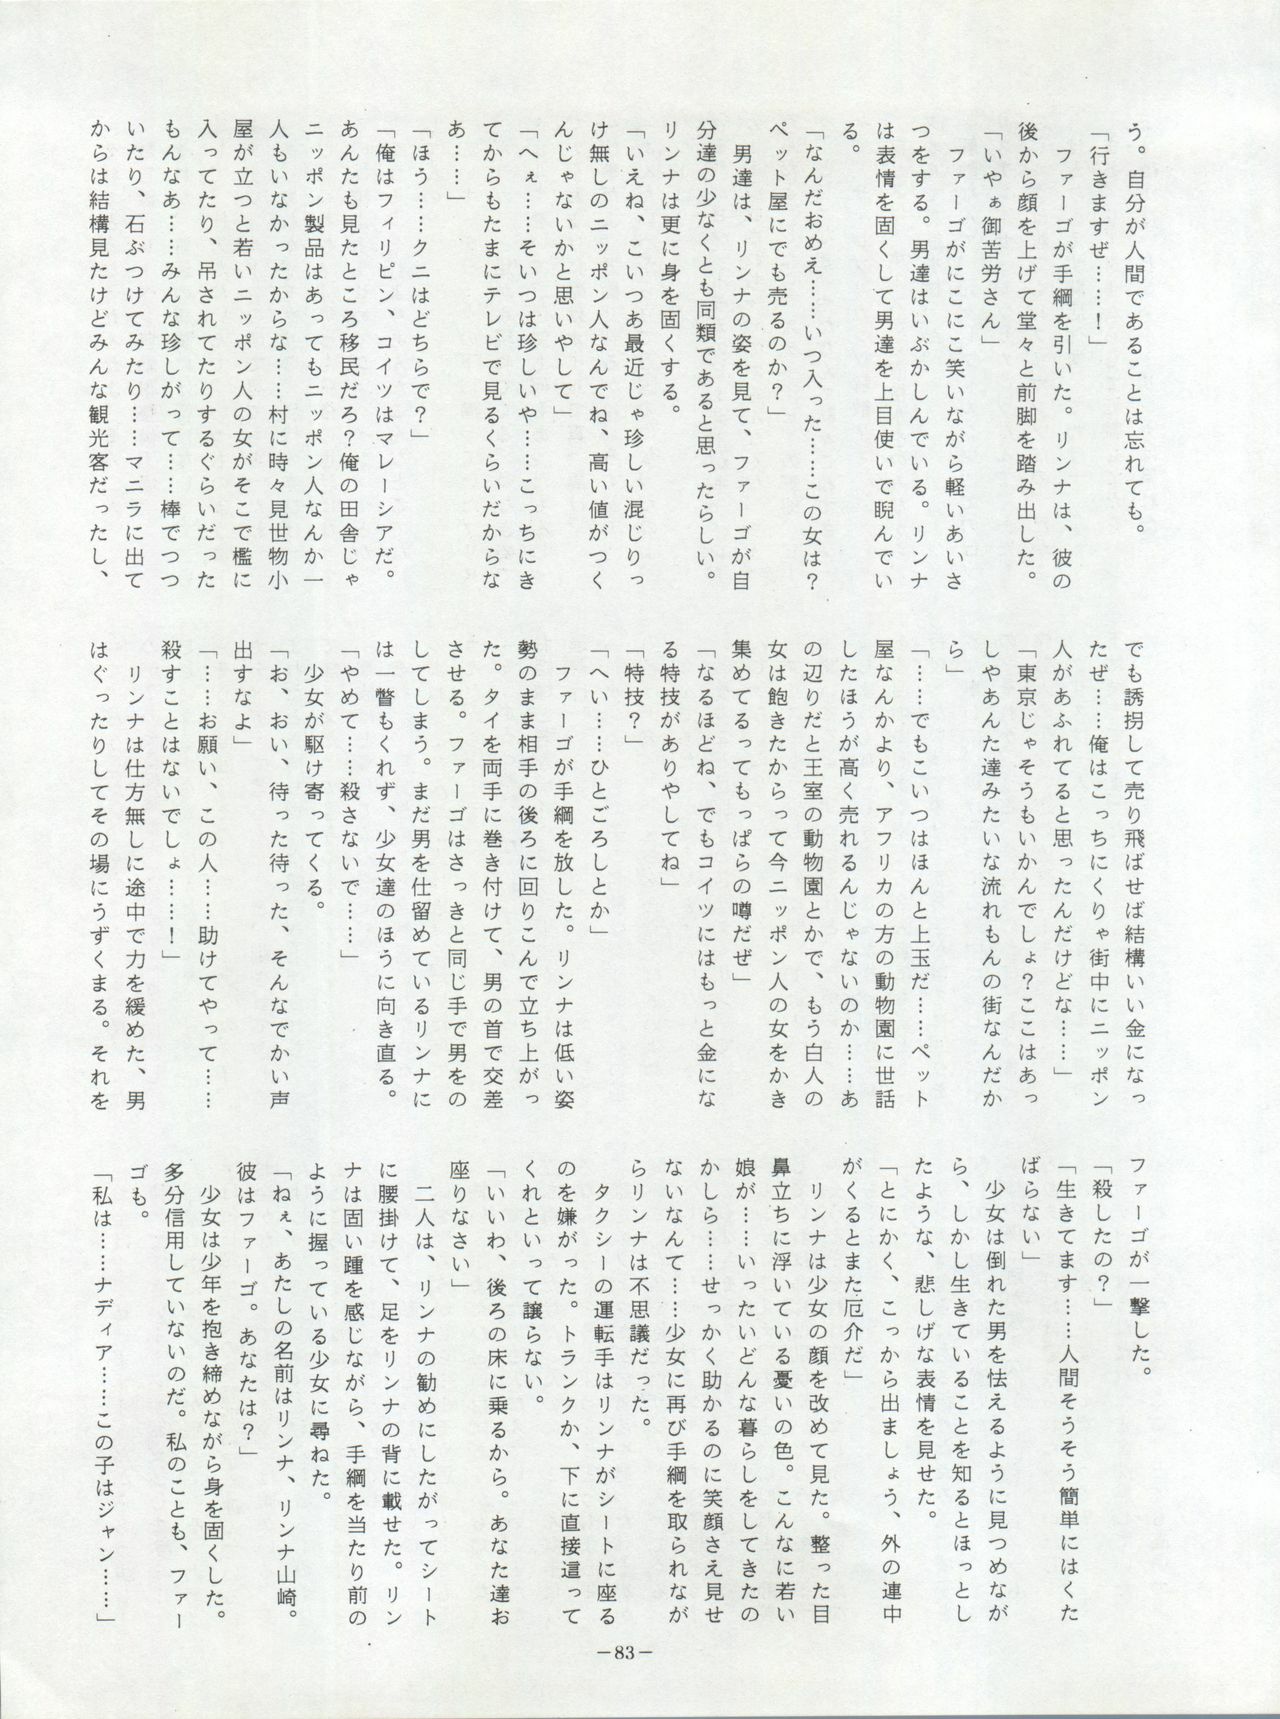 う。自分が人間であることは忘れても。
「行きますぜ……！」
　ファーゴが手綱を引いた。リンナは、彼の
後から顔を上げて堂々と前脚を踏み出した。
「いやぁ御苦労さん」
　ファーゴがにこにこ笑いながら軽いあいさ
つをする。男達はいぶかしんでいる。リンナ
は表情を固くして男達を上目使いで睨んでい
る。
「なんだおめえ……いつ入った……この女は？
ペット屋にでも売るのか？」
　男達は、リンナの姿を見て、ファーゴが自
分達の少なくとも同類であると思ったらしい。
リンナは更に身を固くする。
「いえね、こいつあ最近じゃ珍しい混じりっ
け無しのニッポン人なんでね、高い値がつく
んじゃないかと思いやして」
「へぇ……そいつは珍しいや……こっちにき
てからもたまにテレビで見るくらいだからな
あ……」
「ほう……クニはどちらで？」
「俺はフィリピン、コイツはマレーシアだ。
あんたも見たところ移民だろ？俺の田舎じゃ
ニッポン製品はあってもニッポン人なんか一
人もいなかったからな……村に時々見世物小
屋が立つと若いニッポン人の女がそこで檻に
入ってたり、吊されてたりするぐらいだった
もんなあ……みんな珍しがって……棒でつつ
いたり、石ぶつけてみたり……マニラに出て
からは結構見たけどみんな観光客だったし、
でも誘拐して売り飛ばせば結構いい金になっ
たぜ……俺はこっちにくりゃ街中にニッポン
人があふれてると思ったんだけどな……」
「東京じゃそうもいかんでしょ？ここはあっ
しやあんた達みたいな流れもんの街なんだか
ら」
「……でもこいつはほんと上玉だ……ペット
屋なんかより、アフリカの方の動物園に世話
したほうが高く売れるんじゃないのか……あ
の辺りだと王室の動物園とかで、もう白人の
女は飽きたからって今ニッポン人の女をかき
集めてるってもっぱらの噂だぜ」
「なるほどね、でもコイツにはもっと金にな
る特技がありやしてね」
「特技？」
「へい……ひとごろしとか」
　ファーゴが手綱を放した。リンナは低い姿
勢のまま相手の後ろに回りこんで立ち上がっ
た。タイを両手に巻き付けて、男の首で交差
させる。ファーゴはさっきと同じ手で男をの
してしまう。まだ男を仕留めているリンナに
は一瞥もくれず、少女達のほうに向き直る。
「やめて……殺さないで……」
　少女が駆け寄ってくる。
「お、おい、待った待った、そんなでかい声
出すなよ」
「……お願い、この人……助けてやって……
殺すことはないでしょ……！」
　リンナは仕方無しに途中で力を緩めた、男
はぐったりしてその場にうずくまる。それを
ファーゴが一撃した。
「殺したの？」
「生きてます……人間そうそう簡単にはくた
ばらない」
　少女は倒れた男を怯えるように見つめなが
ら、しかし生きていることを知るとほっとし
たような、悲しげな表情を見せた。
「とにかく、こっから出ましょう、外の連中
がくるとまた厄介だ」
　リンナは少女の顔を改めて見た。整った目
鼻立ちに浮いている憂いの色。こんなに若い
娘が……いったいどんな暮らしをしてきたの
かしら……せっかく助かるのに笑顔さえ見せ
ないなんて……少女に再び手綱を取られなが
らリンナは不思議だった。
　タクシーの運転手はリンナがシートに座る
のを嫌がった。トランクか、下に直接這って
くれといって譲らない。
「いいわ、後ろの床に乗るから。あなた達お
座りなさい」
　二人は、リンナの勧めにしたがってシート
に腰掛けて、足をリンナの背に載せた。リン
ナは固い踵を感じながら、手綱を当たり前の
ように握っている少女に尋ねた。
「ねぇ、あたしの名前はリンナ、リンナ山崎。
彼はファーゴ。あなたは？」
　少女は少年を抱き締めながら身を固くした。
多分信用していないのだ。私のことも、ファー
ゴも。
「私は……ナディア……この子はジャン……」
－83－